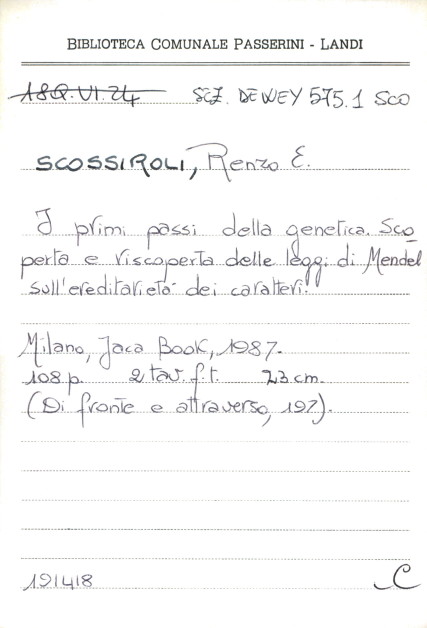 BIBLIOTECA COMUNALE PASSERINI - LANDI
18Q.VI.24 SEZ. DEWEY 575.1 SCO
SCOSSIROLI, Renzo E.
I primi passi della genetica. Sco
perta e riscoperta delle leggi di Mendel
sull'ereditarietà dei caratteri.
Milano, Jaca Book, 1987.
108 p. 2 tav. f.t. 23 cm.
(Di fronte e attraverso, 197).
191418 C